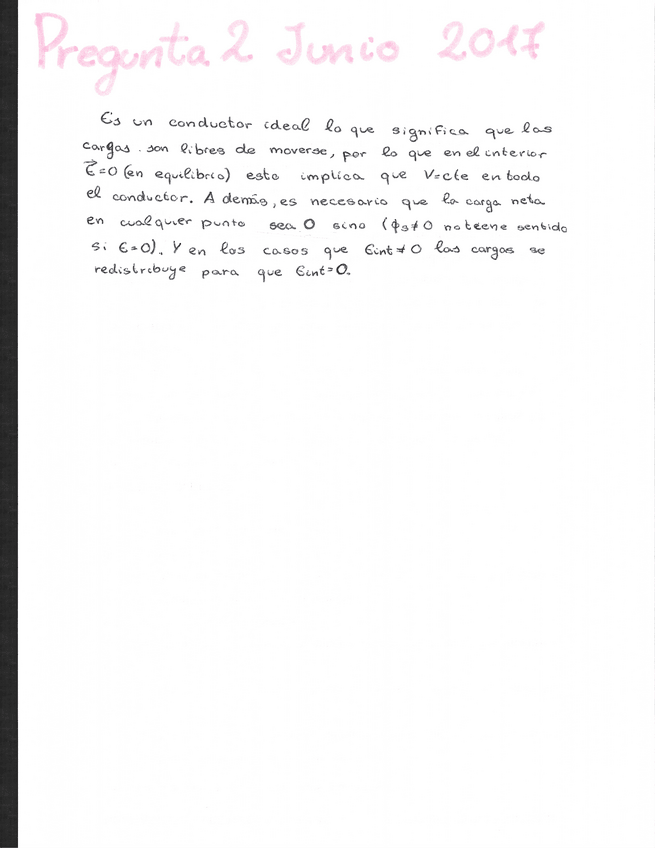 Pregunta 2 Junio 2017
Es un conductor ideal lo que significa que las
cargas. son libres de moverse, por lo que en el interior
E⃗=0 (en equilibrio) esto implica que V=cte en todo
el conductor. A demás, es necesario que la carga neta
en cualquier punto sea 0 sino (ϕs≠0 no teene sentido
si E=0). Y en los casos que Eint≠0 las cargas se
redistribuye para que Eint=0.